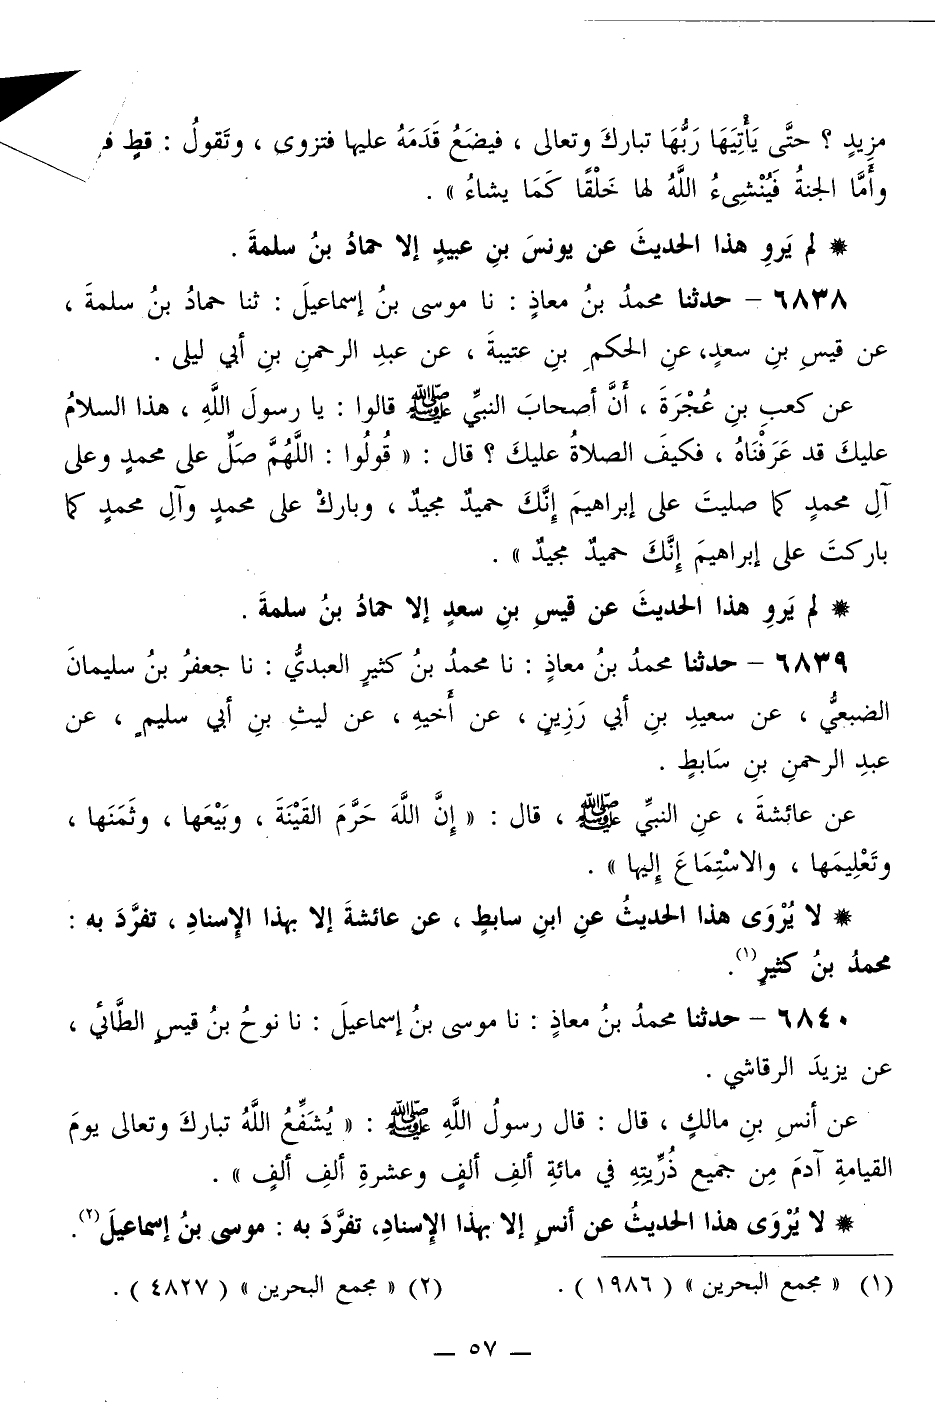 مزيدٍ ؟ حتَّى يَأْتِيَهَا رَبُّهَا تبارك وتعالى ، فيضَعُ قَدَمَهُ عليها فتزوى ، وتَقولُ : قطٍ
وأَمَّا الجنةُ فَيُنْشِىءُ اللَّهُ لها خَلْقًا كَمَا يشاءُ » .
* لم يَروِ هذا الحديثَ عن يونسَ بنِ عبيدٍ إلا حمادُ بنُ سلمةَ .
٦٨٣٨ – حدثنا محمدُ بنُ معاذٍ : نا موسى بنُ إسماعيلَ : ثنا حمادُ بنُ سلمةَ ،
عن قيسِ بنِ سعدٍ، عنِ الحكمِ بنِ عتيبةَ ، عن عبدِ الرحمنِ بنِ أبي ليلى .
عن كعبِ بنِ عُجْرَةَ ، أَنَّ أصحابَ النبيِّ ﷺ قالوا : يا رسولَ اللَّهِ ، هذا السلامُ
عليكَ قد عَرَفْنَاهُ ، فكيفَ الصلاةُ عليكَ ؟ قال : « قُولُوا : اللَّهُمَّ صَلِّ على محمدٍ وعلى
آلِ محمدٍ كما صليتَ على إبراهيمَ إِنَّكَ حميدٌ مجيدٌ ، وباركْ على محمدٍ وآلِ محمدٍ كما
باركتَ على إبراهيمَ إِنَّكَ حميدٌ مجيدٌ » .
* لم يَروِ هذا الحديثَ عن قيسِ بنِ سعدٍ إلا حمادُ بنُ سلمةَ .
٦٨٣٩ – حدثنا محمدُ بنُ معاذٍ : نا محمدُ بنُ كثيرٍ العبديُّ : نا جعفرُ بنُ سليمانَ
الضبعيُّ ، عن سعيدِ بنِ أبي رَزِينٍ ، عن أَخيهِ ، عن ليثِ بنِ أبي سليمٍ ، عن
عبدِ الرحمنِ بنِ سَابطٍ .
عن عائشةَ ، عنِ النبيِّ ﷺ ، قال : « إِنَّ اللَّهَ حَرَّمَ القَيْنَةَ ، وبَيْعَها ، وثَمَنَها ،
وتَعْلِيمَها ، والاسْتِمَاعَ إِليها » .
* لا يُرْوَى هذا الحديثُ عنِ ابنِ سابطٍ ، عن عائشةَ إلا بهذا الإِسنادِ ، تفرَّدَ به :
محمدُ بنُ كثيرٍ(١).
٦٨٤٠ – حدثنا محمدُ بنُ معاذٍ : نا موسى بنُ إسماعيلَ : نا نوحُ بنُ قيسٍ الطَّائي ،
عن يزيدَ الرقاشي .
عن أنسِ بنِ مالكٍ ، قال : قال رسولُ اللَّهِ ﷺ : « يُشَفِّعُ اللَّهُ تباركَ وتعالى يومَ
القيامةِ آدمَ مِن جميع ذُرِّيتِهِ في مائةِ ألفِ ألفٍ وعشرةِ ألفِ ألفٍ » .
* لا يُرْوَى هذا الحديثُ عن أنسٍ إلا بهذا الإِسنادِ، تفرَّدَ به : موسى بنُ إسماعيلَ(٢).
(١) « مجمع البحرين » ( ١٩٨٦ ) . (٢) « مجمع البحرين » ( ٤٨٢٧ ) .
— ٥٧ —